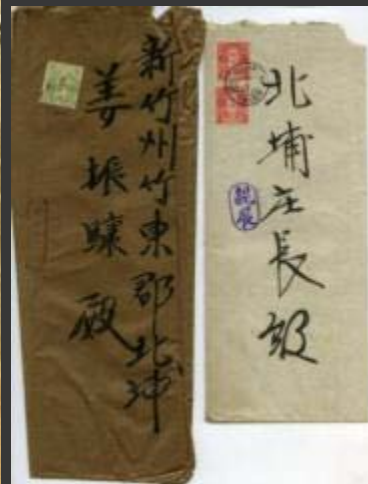 新竹州竹東郡北埔
姜振驤殿
北埔庄長殿
親展